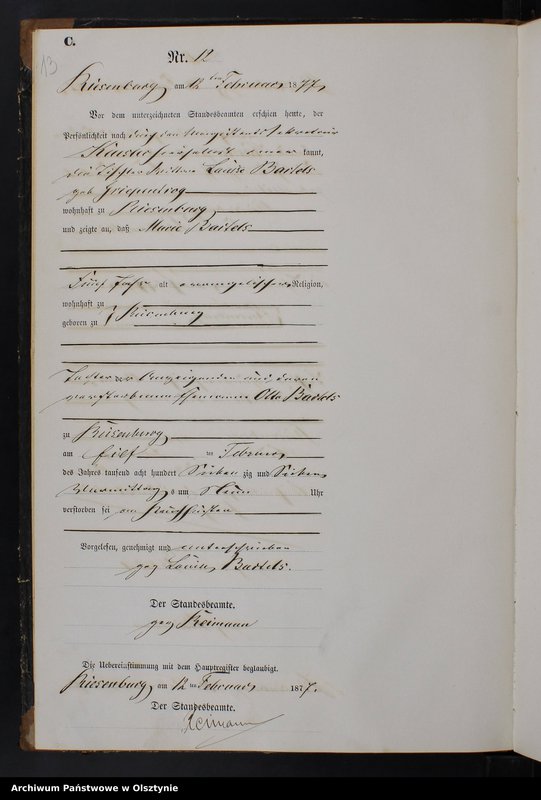 C.
13
Nr. 12
Riesenburg, am 12ten Februar 1877
Vor dem unterzeichneten Standesbeamten erschien heute, der
Persönlichkeit nach durch den
kannt,
die Louise Bartels
geb.
wohnhaft zu Riesenburg,
und zeigte an, daß Marie Bartels
Fünf Jahr alt evangelischer Religion,
wohnhaft zu
geboren zu } Riesenburg
Tochter der Anzeigenden und deren
verstorbenen Ehemannes Otto Bartels
zu Riesenburg,
am Eilf ten Februar
des Jahres tausend acht hundert Sieben zig und Sieben
Vormittags um Neun Uhr
verstorben sei
Vorgelesen, genehmigt und unterschrieben
gez Louise Bartels.
Der Standesbeamte.
gez Reimann
Die Uebereinstimmung mit dem Hauptregister beglaubigt.
Riesenburg, am 12 ten Februar 1877.
Der Standesbeamte.
Reimann
Archiwum Państwowe w Olsztynie